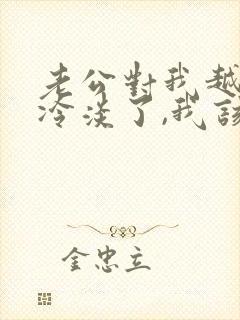 老公對我越
冷淡了,我該
金忠立